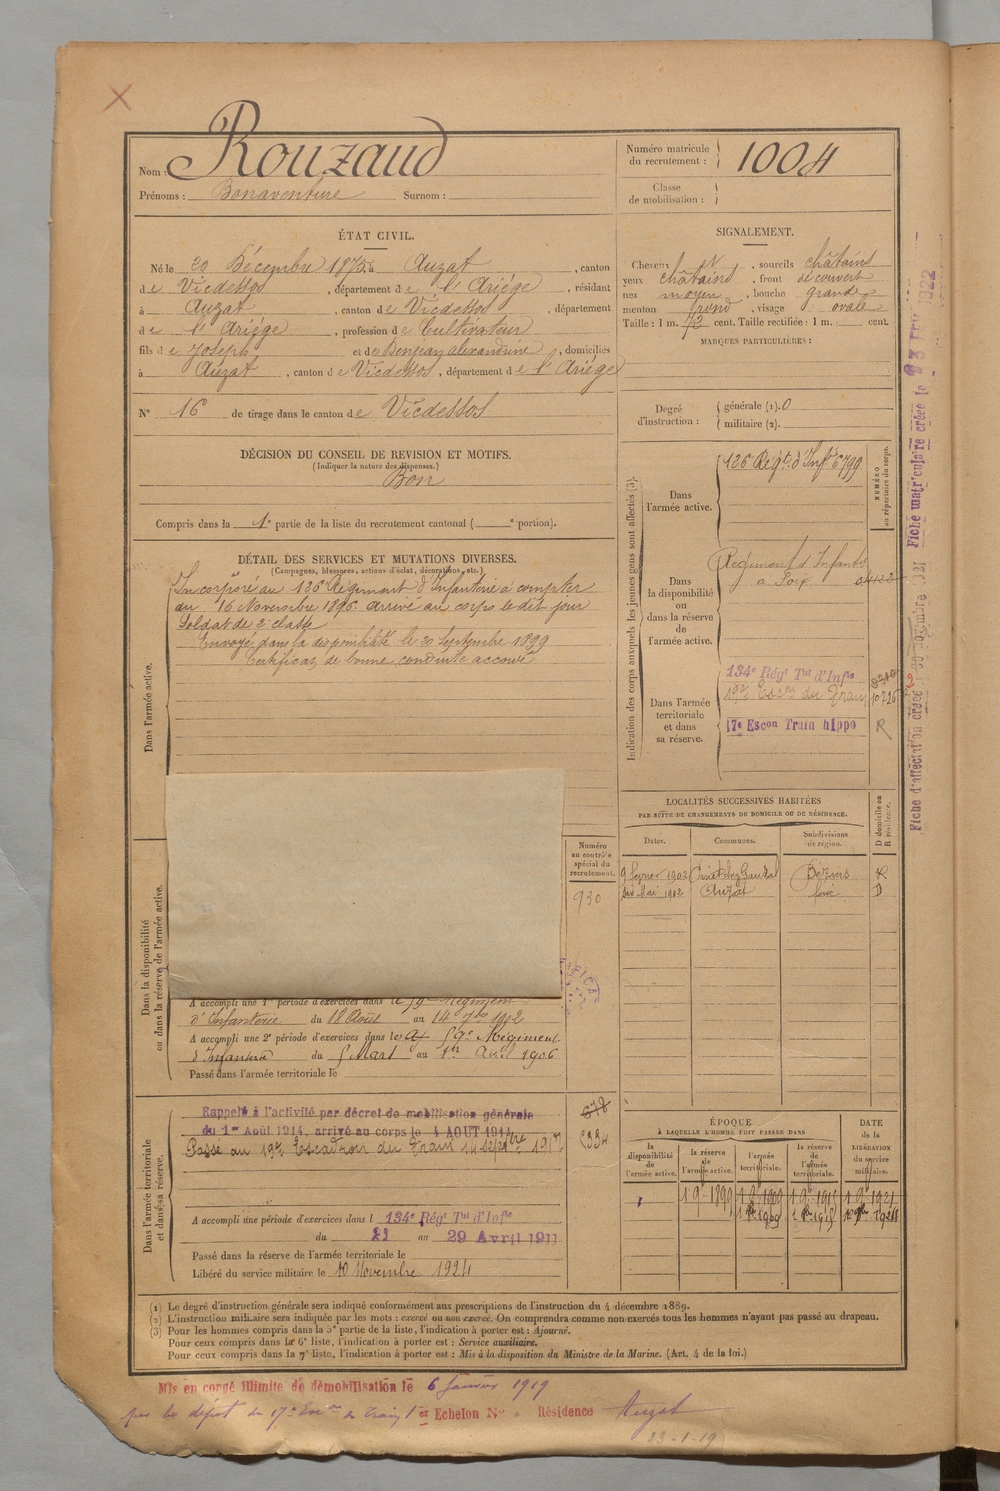 Nom : Rouzaud
Prénoms : Bonaventure Surnom :
Numéro matricule du recrutement : 1004
Classe de mobilisation :
ÉTAT CIVIL.
Né le 20 Décembre 1875 à Auzat, canton
de Vicdessos, département de l'Ariége, résidant
à Auzat, canton de Vicdessos, département
de l'Ariége, profession de Cultivateur
fils de Joseph et de Benjean alexandrine, domiciliés
à Auzat, canton de Vicdessos, département de l'Ariége
N° 16 de tirage dans le canton de Vicdessos
DÉCISION DU CONSEIL DE REVISION ET MOTIFS.
(Indiquer la nature des dispenses.)
Bon
Compris dans la 1e partie de la liste du recrutement cantonal ( e portion).
SIGNALEMENT.
Cheveux et, sourcils châtains
yeux châtains, front découvert
nez moyen, bouche grande
menton rond, visage ovale
Taille : 1 m. 72 cent. Taille rectifiée : 1 m. cent.
MARQUES PARTICULIÈRES :
Degré d'instruction : générale (1). 0
militaire (2).
DÉTAIL DES SERVICES ET MUTATIONS DIVERSES.
(Campagnes, blessures, actions d'éclat, décorations, etc.)
Dans l'armée active.
Incorporé au 126e Régiment d'Infanterie à compter
du 16 Novembre 1896. arrivé au corps le dit jour
Soldat de 2e classe
Envoyé dans la disponibilité le 20 Septembre 1899
Certificat de bonne conduite accordé
Indication des corps auxquels les jeunes gens sont affectés (3).
NUMÉRO au répertoire du corps.
Dans l'armée active.
126 Régt. d'Infie 6799
Dans la disponibilité ou dans la réserve de l'armée active.
Régiment d'Infante
à Foix
Dans l'armée territoriale et dans sa réserve.
134e Régt Tal d'Infie
19e Escon du Train
17e Escon Train hippo R
Fiche matriculaire créée le
Fiche d'affectation créée
LOCALITÉS SUCCESSIVES HABITÉES
PAR SUITE DE CHANGEMENTS DE DOMICILE OU DE RÉSIDENCE.
Dates. Communes. Subdivisions de région. D domicile ou R résidence.
9 février 1902 Béziers R
Mai 1902 Auzat Foix D
Dans la disponibilité ou dans la réserve de l'armée active.
Numéro au contrôle spécial du recrutement.
930
A accompli une 1re période d'exercices dans le 59e Régiment
d'Infanterie du 18 Août au 14 7bre 1902
A accompli une 2e période d'exercices dans le 59e Régiment
d'Infanterie du 5 Mars au 1er Avril 1906
Passé dans l'armée territoriale le
Dans l'armée territoriale et dans sa réserve.
Rappelé à l'activité par décret de mobilisation générale
du 1er Août 1914, arrivé au corps le 4 AOUT 1914
Passé au 19e Escadron du Train 14 Septbre 1917
A accompli une période d'exercices dans l 134e Régt Tal d'Infie
du 21 au 29 Avril 1911
Passé dans la réserve de l'armée territoriale le
Libéré du service militaire le 10 Novembre 1924
ÉPOQUE
À LAQUELLE L'HOMME DOIT PASSER DANS
DATE de la LIBÉRATION du service militaire.
la disponibilité de l'armée active. la réserve de l'armée active. l'armée territoriale. la réserve de l'armée territoriale.
1 9e 1899 1 9e 1909 1 9e 1915 1 9e 1921
(1) Le degré d'instruction générale sera indiqué conformément aux prescriptions de l'instruction du 4 décembre 1889.
(2) L'instruction militaire sera indiquée par les mots : exercé ou non exercé. On comprendra comme non exercés tous les hommes n'ayant pas passé au drapeau.
(3) Pour les hommes compris dans la 5e partie de la liste, l'indication à porter est : Ajourné.
Pour ceux compris dans la 6e liste, l'indication à porter est : Service auxiliaire.
Pour ceux compris dans la 7e liste, l'indication à porter est : Mis à la disposition du Ministre de la Marine. (Art. 4 de la loi.)
Mis en congé illimité de démobilisation le 6 Janvier 1919
par le dépôt du 17e Escon du Train 1er Echelon N° Résidence Auzat
23-1-19